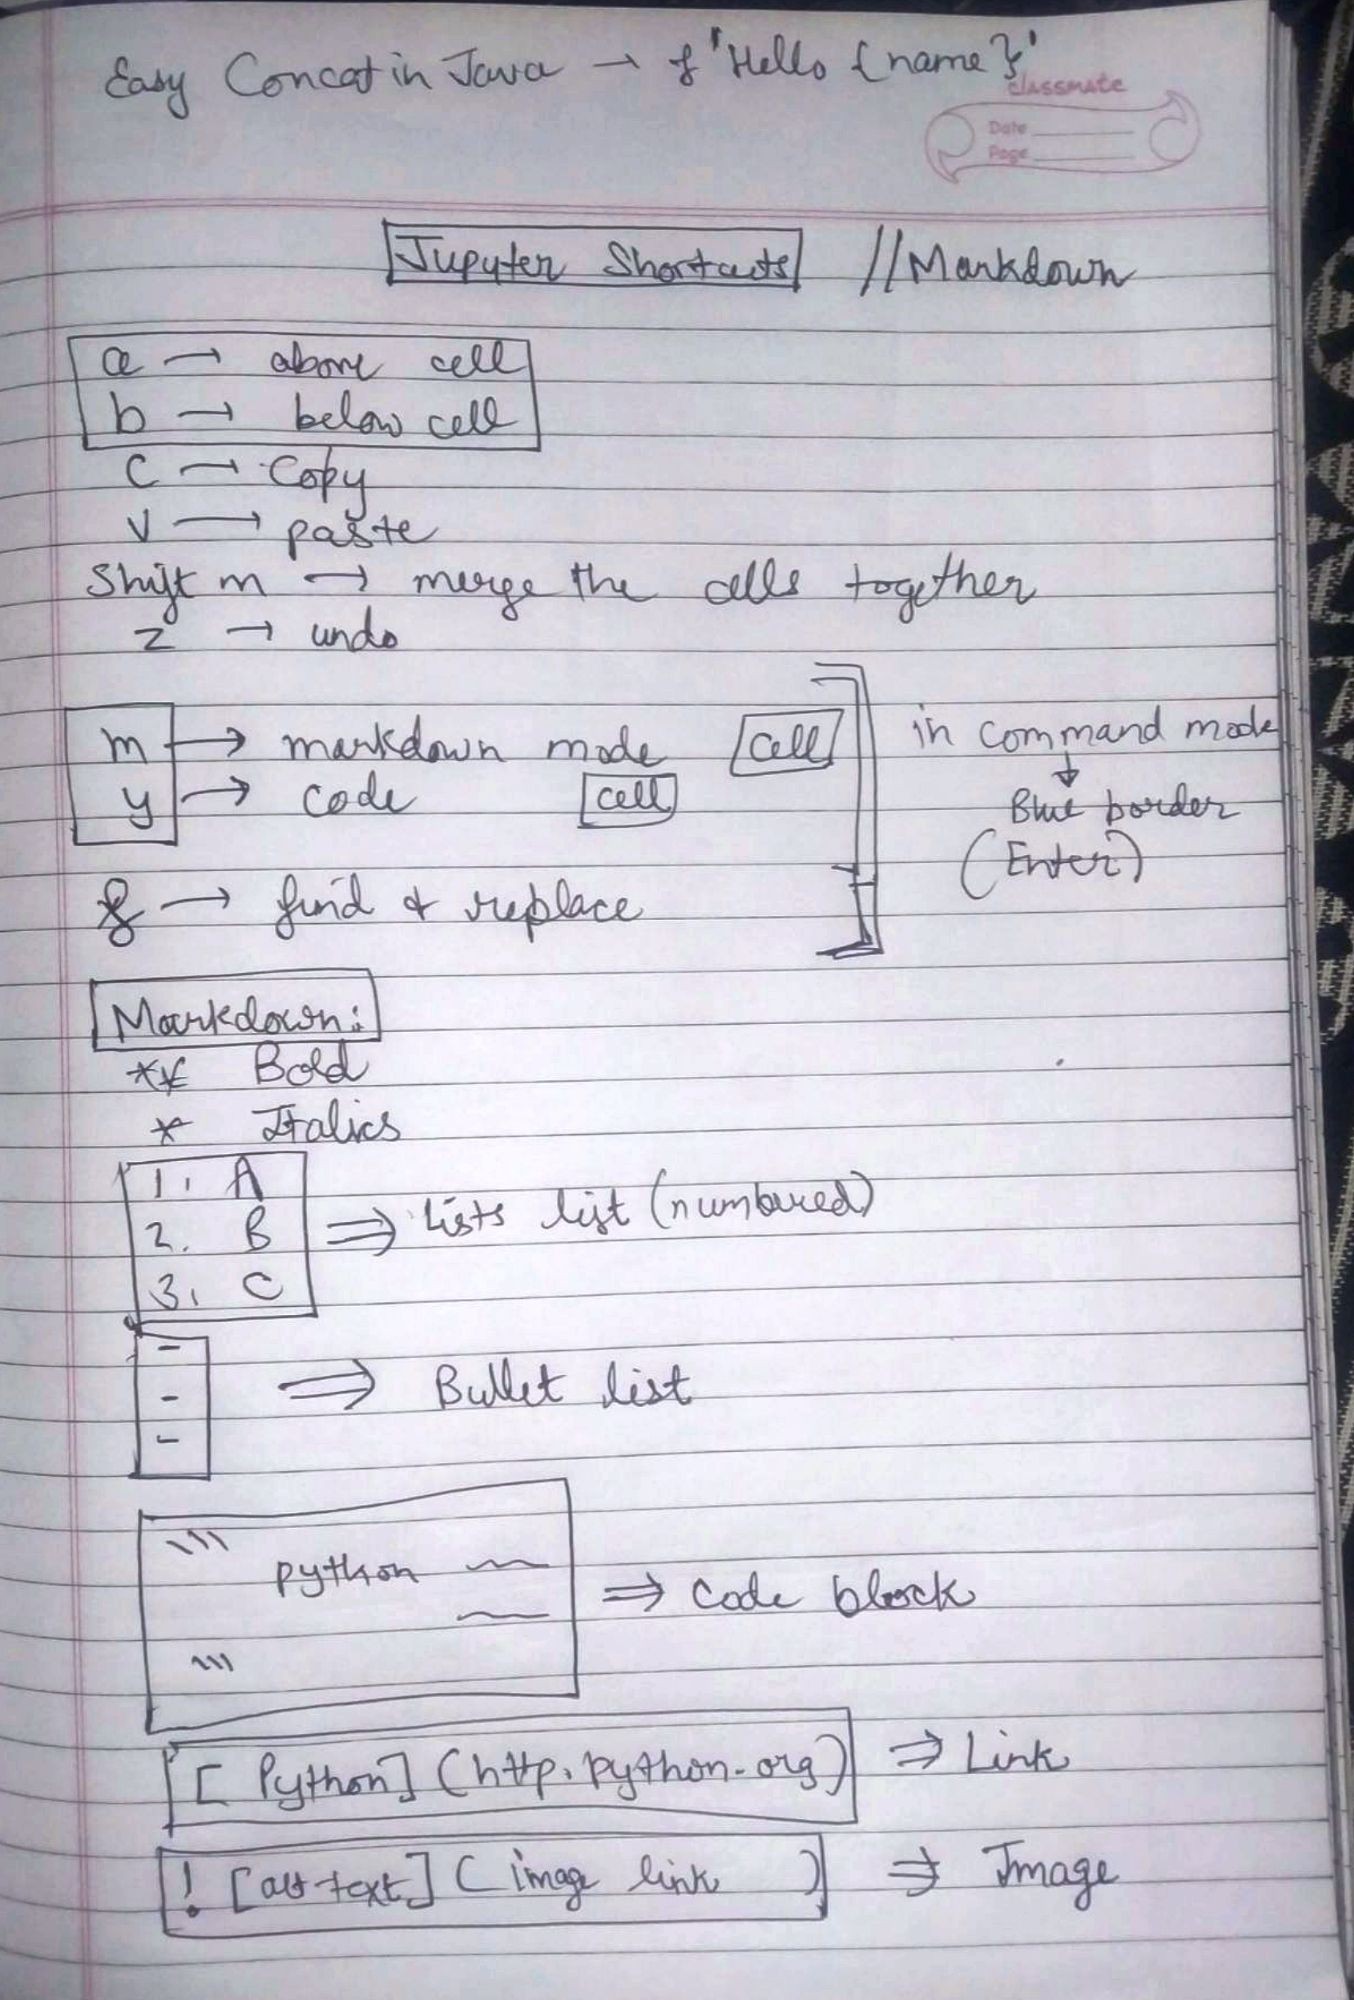 Easy Concat in Java → f'Hello {name}'
classmate
Date
Page
Jupyter Shortcuts //Markdown
a → above cell
b → below cell
c → Copy
v → paste
Shift m → merge the cells together
z → undo
m → markdown mode cell
y → code cell
in command mode
↓
Blue border
(Enter)
f → find & replace
Markdown:
** Bold
* Italics
1. A
2. B
3. C
⇒ Lists list (numbered)
-
-
-
⇒ Bullet list
```
python
```
⇒ Code block
[Python] (http.python.org) ⇒ Link
! [alt text] (image link ) ⇒ Image